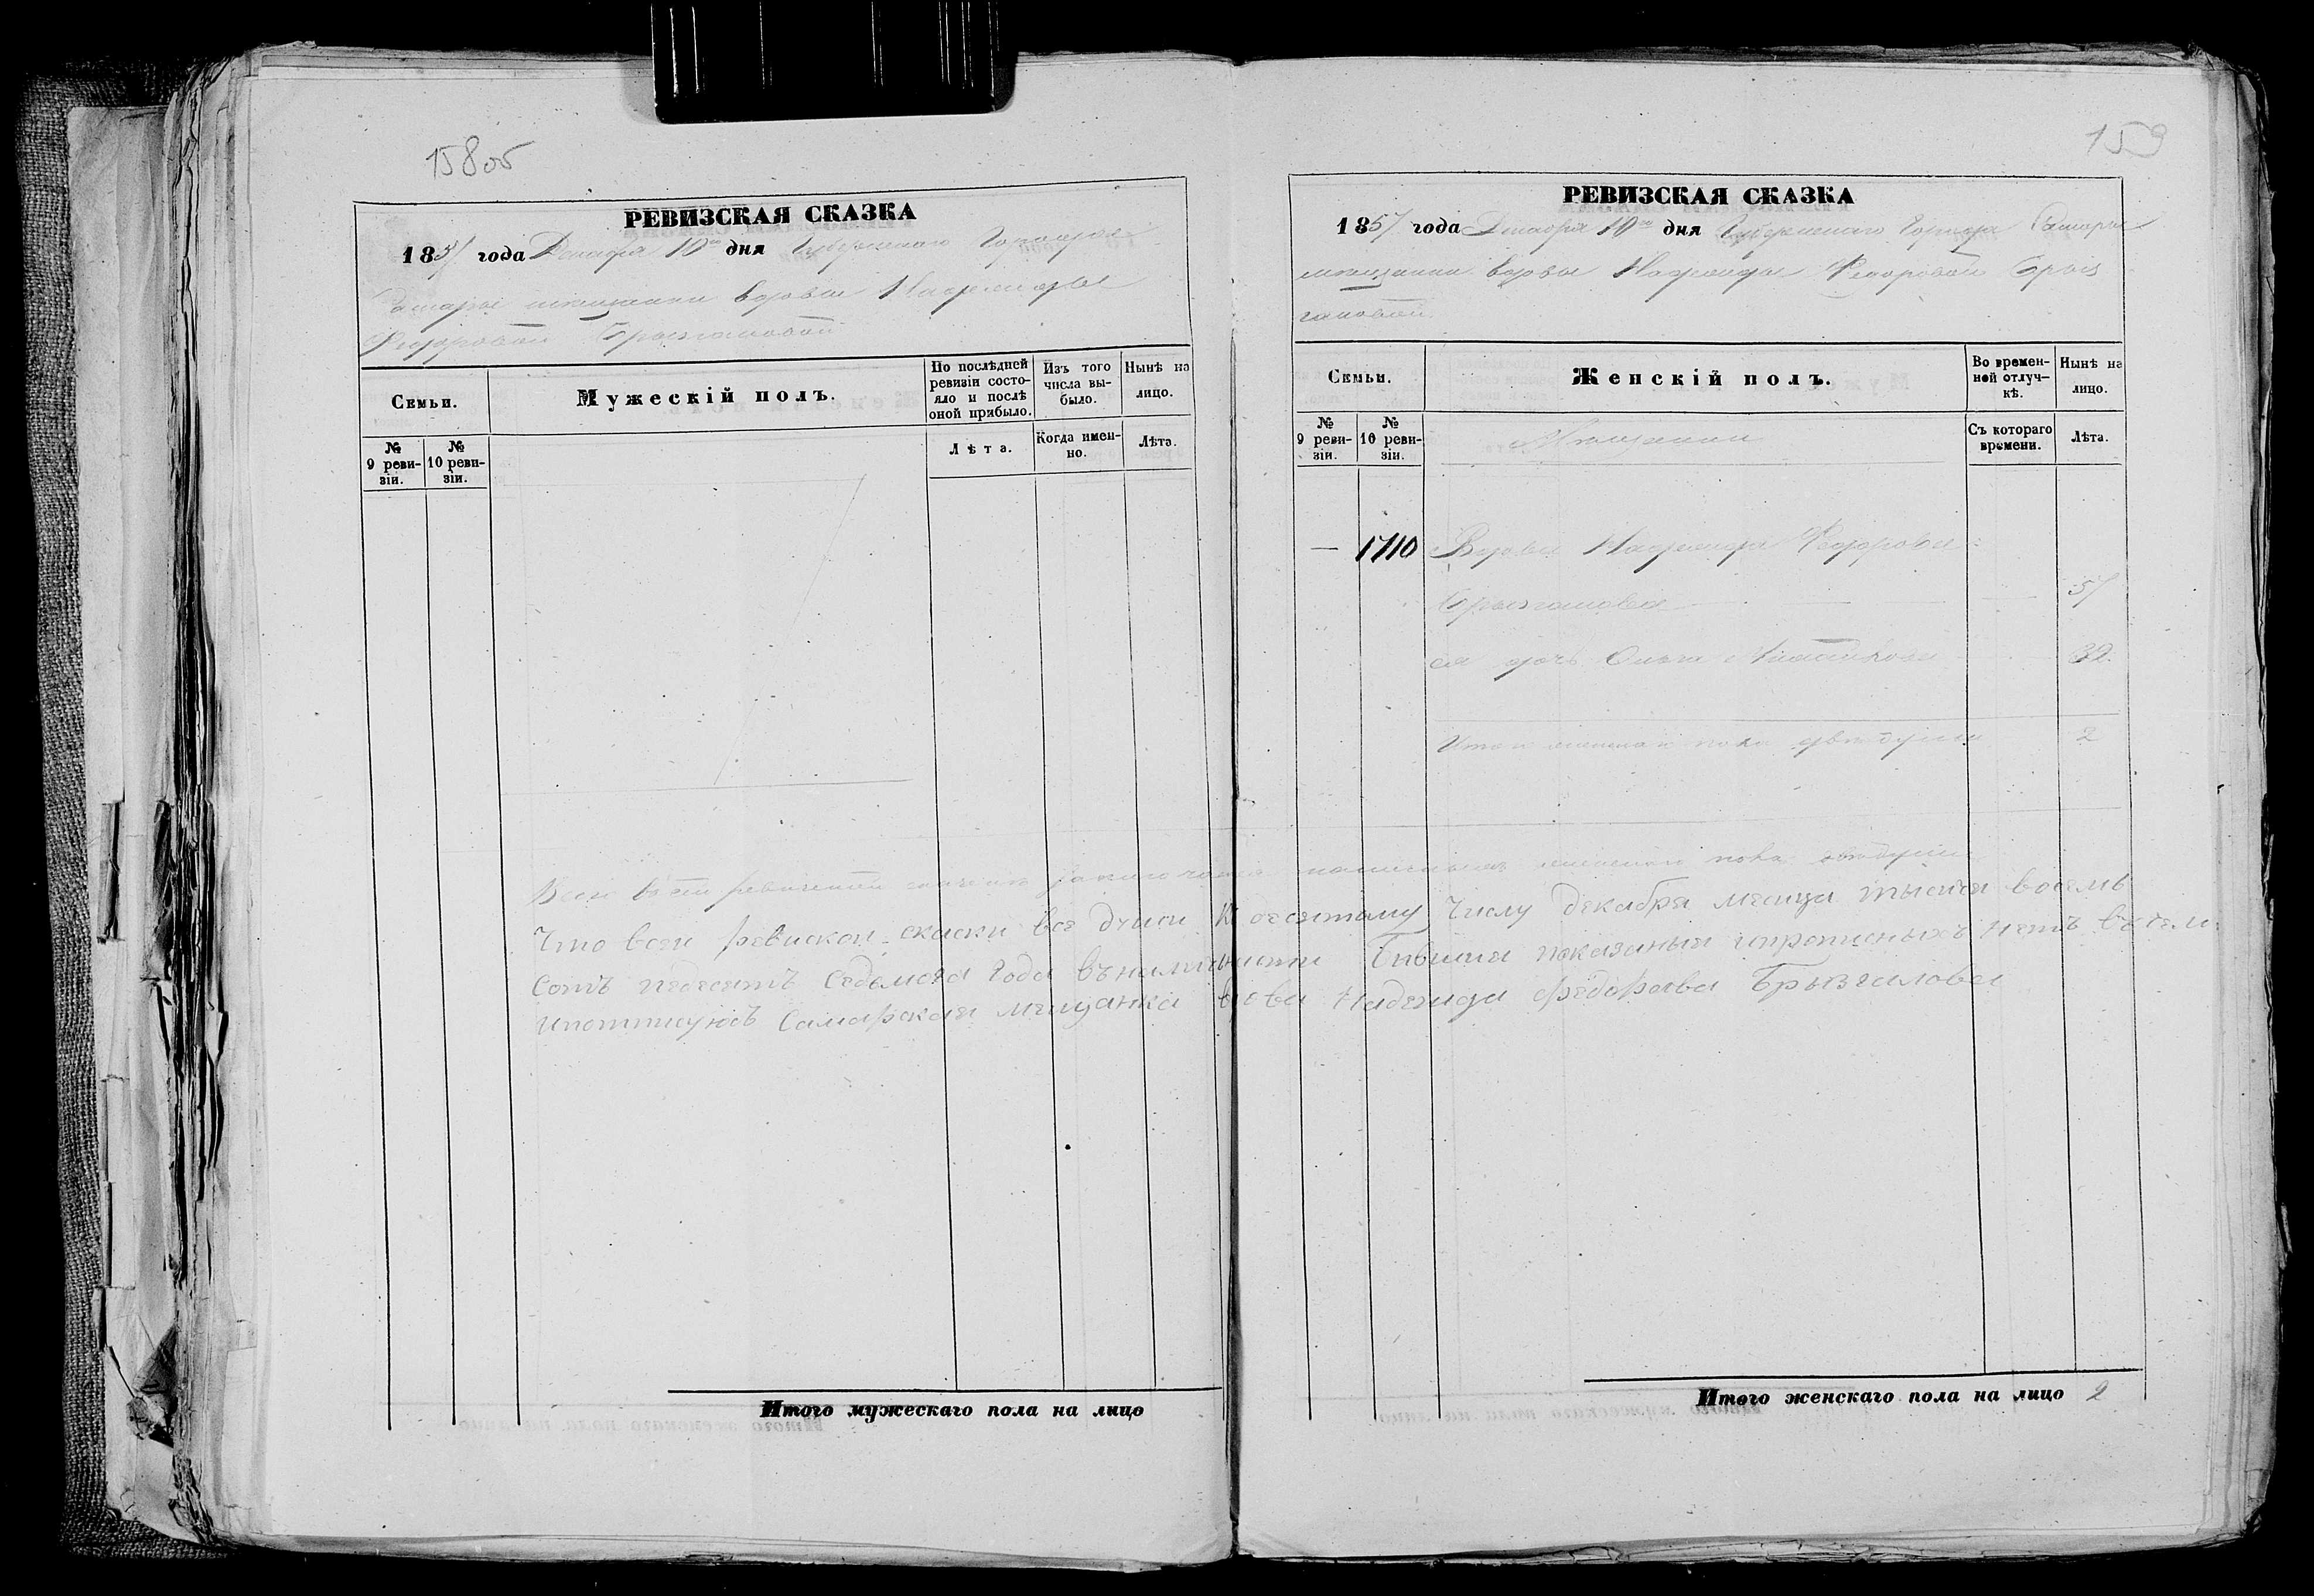 158об
РЕВИЗСКАЯ СКАЗКА
1857 года Декабря 10го дня Губернскаго Города
Самары мещанки вдовы Надежды
Федоровой Брызгаловой
Семьи.
Мужескій полъ.
По послѣдней ревизіи состояло и послѣ оной прибыло.
Изъ того числа выбыло.
Нынѣ на лицо.
№ 9 ревизіи.
№ 10 ревизіи.
Лѣта.
Когда именно.
Лѣта.
Итого мужескаго пола на лицо
159
РЕВИЗСКАЯ СКАЗКА
1857 года Декабря 10го дня Губернскаго Города Самары
мещанки вдовы Надежды Федоровой Брыз
галовой
Семьи.
Женскій полъ.
Во временной отлучкѣ.
Нынѣ на лицо.
№ 9 ревизіи.
№ 10 ревизіи.
Мещанки
Съ котораго времени.
Лѣта.
— 1710 Вдова Надежда Федорова
Брызгалова 57
ея дочь Ольга 32
Итого женскаго пола две души 2
Всего въ сей ревизской женскаго пола две души
Что всей ревиской скаски все души к десятому числу декабря месяца тысяча восемь
сотъ педесятъ седьмова года въналичности показаныи ипрописныхъ нетъ вътем
ипоттисуюсъ Самарская мещанка вдова Надежда федорова Брызгалова
Итого женскаго пола на лицо 2